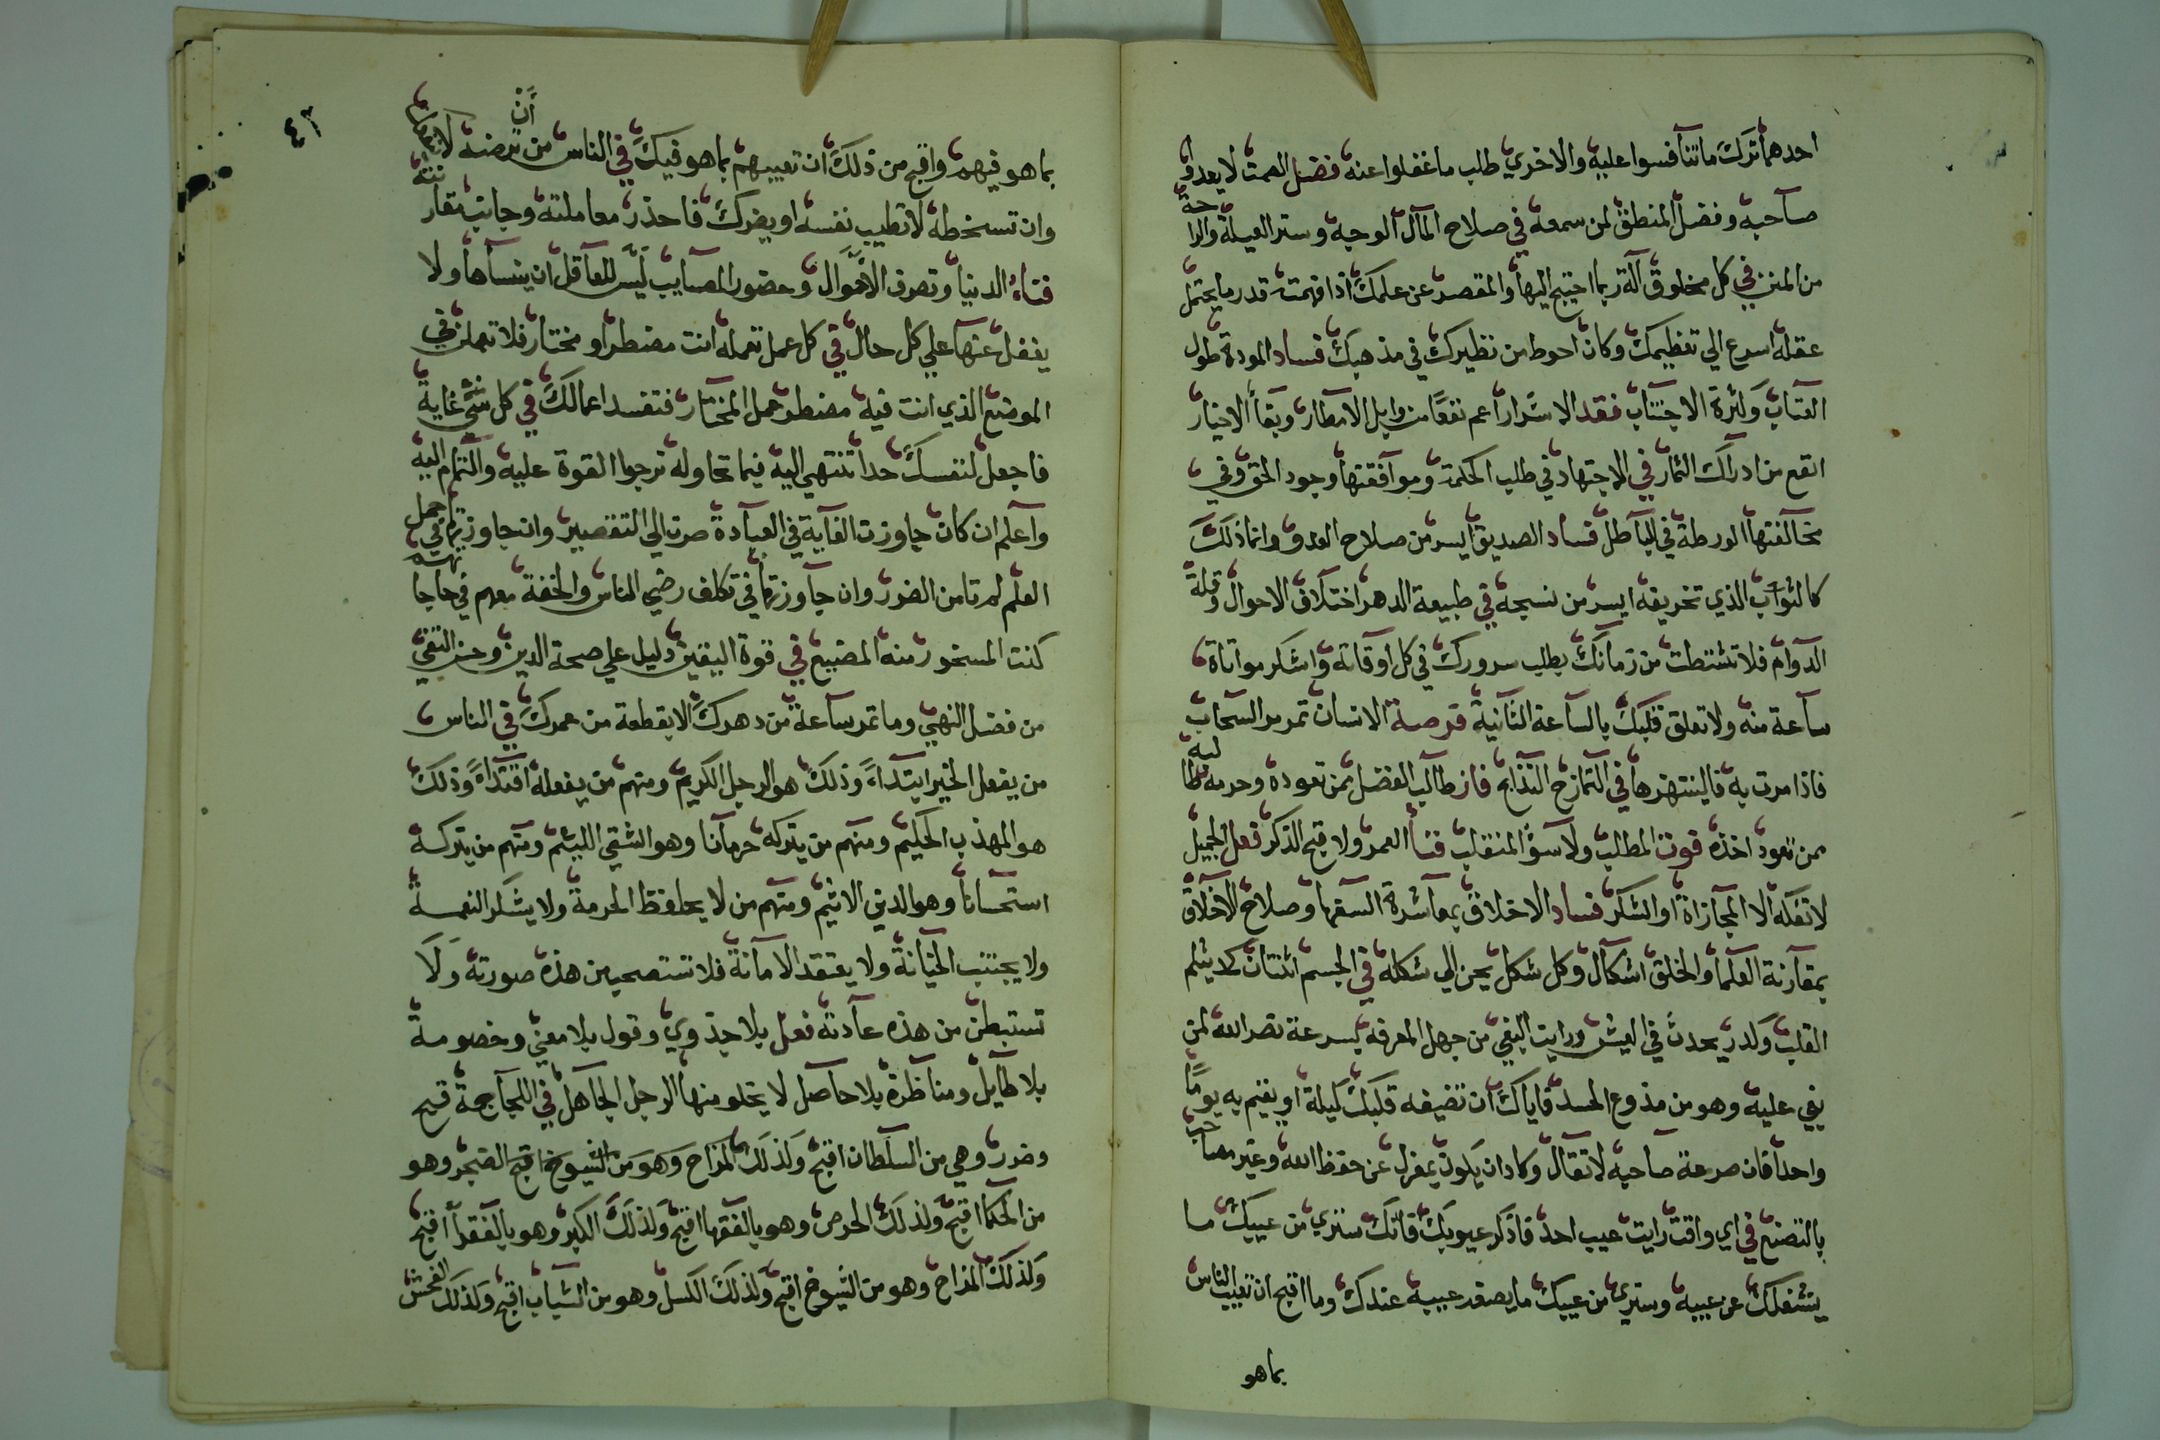 احدهما ترك ما تنافسوا عليه والاخري طلب ما غفلوا عنه فضل الصمت لا يعدوا
صاحبه وفضل المنطق لمن سمعه في صلاح المال الوجه وستر العيلة والراحة
من المنن في كل مخلوق آلة ربما احتيج اليها والمقصر عن علمك اذا فهمته قدر ما يحتمل
عقله اسرع الي تعظيمك وكان احوط من نظيرك في مذهبك فساد المودة طول
العتاب وكثرة الاجتناب فقد الاشرار اعم نفعا من وابل الامطار وبقاء الاخيار
انفع من ادراك الثمار في الاجتهاد في طلب الحكمة وموافقتها وجود الحق وفي
مخالفتها الورطة في الباطل فساد الصديق ايسر من صلاح العدو وانما ذلك
كالثوب الذي تخريقه ايسر من نسيجه في طبيعة الدهر اختلاف الاحوال وقلة
الدوام فلا تشتطت من زمانك بطلب سرورك في كل اوقاته واشكر مواتاة
ساعة منه ولا تعلق قلبك بالساعة الثانية فرصة الانسان تمر مر السحاب
فاذا مرت به فالينتهزها في التمازح التذابح فاز طالب الفضل ممن تعوده وحرمه طالبه
ممن تعود اخذه فوت المطلب ولا سوء المنقلب فناء العمر ولا قبح الذكر فعل الجميل
لا تفكه الا المجازاة او الشكر فساد الاخلاق بمعاشرة السفها وصلاح الاخلاق
بمقارنة العلما والخلق اشكال وكل شكل يحن الي شكله في الجسم اثنتان كد يثلم
القلب وكدر يحدث في العيش ورايت البغي من جهل المعرفة بسرعة نصر الله لمن
بغي عليه وهو من مذوع الحسد فاياك ان تضيفه قلبك ليلة او يقيم به يوما
واحدا فان صرعة صاحبه لا تقال وكاد ان يكون بمعزل عن حفظ الله وغير مصاحب
بالتصنع في اي واقت رايت عيب احد فاذكر عيوبك فانك ستري من عيبك ما
يشغلك عن عيبه وستري من عيبك ما يصغر عيبه عندك وما اقبح ان تعيب الناس
بما هو
٤٢
بما هو فيهم واقبح من ذلك ان تعيبهم بما هو فيك في الناس من ان ترضه لا
وان تسخطه لا تطيب نفسه او يضرك فاحذر معاملته وجانب مقارنته
فناء الدنيا وتصرف الاحوال وحضور المصايب ليس للعاقل ان ينساها ولا
يغفل عنها علي كل حال في كل عمل تعمله انت مضطر او مختار فلا تعملن في
الموضع الذي انت فيه مضطر عمل المختار فتفسد اعمالك في كل شيء غاية
فاجعل لنفسك حدا تنتهي اليه فيما تحاوله ترجوا القوة عليه والتمام اليه
واعلم ان كان جاوزت الغاية في العبادة صرت الي التقصير وان جاوزتها في حمل
العلم لم تامن الضور وان جاوزتها في تكلف رضي الناس والخفة معهم في حاجاتهم
كنت المسخور منه المضيع في قوة اليقين دليل علي صحة الدين وحسن التقي
من فضل النهي وما تمر ساعة من دهرك الا بقطعة من عمرك في الناس
من يفعل الخير ابتداء وذلك هو الرجل الكريم ومنهم من يفعله اقتداء وذلك
هو المهذب الحكيم ومنهم من يتركه حرمانا وهو الشقي اللئيم ومنهم من يتركه
استحسانا وهو الدني الاثيم ومنهم من لا يحافظ الحرمة ولا يشكر النعمة
ولا يجتنب الخيانة ولا يعتقد الامانة فلا تستصحب من هذه صورته ولا
تستبطن من هذه عادته فعل بلا جذوي وقول بلا معني وخصومة
بلا طايل ومناظرة بلا حاصل لا يخلو منها الرجل الجاهل في اللجاجة قبح
وضرر وهي من السلطان اقبح وكذلك المزاح وهو من الشيوخ اقبح الضجر وهو
من الحكما اقبح وكذلك الحرص وهو بالفقها اقبح وكذلك الكبر وهو بالفقرا اقبح
وكذلك المزاح وهو من الشيوخ اقبح وكذلك الكسل وهو من الشباب اقبح وكذلك الفحش